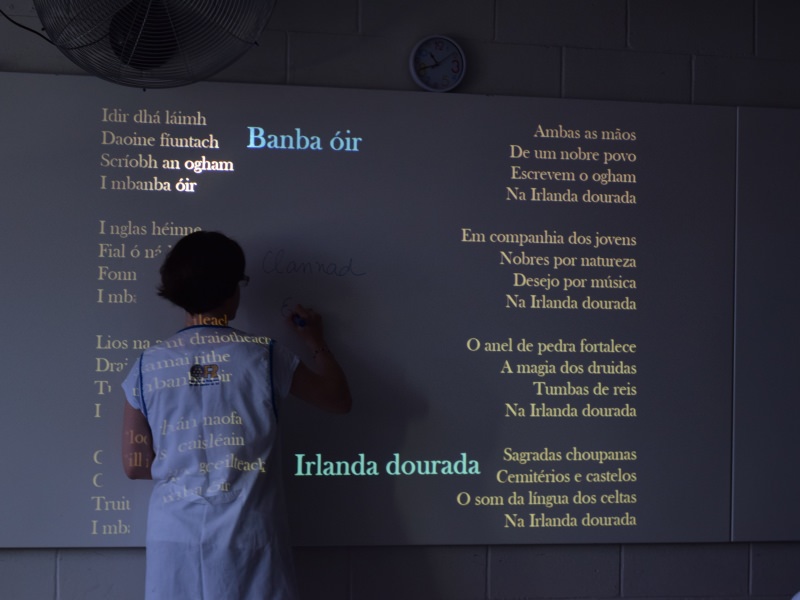 Idir dhá láimh
Daoine fíuntach
Scríobh an ogham
I mbanba óir
Banba óir
I nglas héinne
Fial ó
Fonn
I
Clannad
Lios na draiotheach
rithe
I mbanba óir
naofa
caisléain
gceilteach
I
Irlanda dourada
Ambas as mãos
De um nobre povo
Escrevem o ogham
Na Irlanda dourada
Em companhia dos jovens
Nobres por natureza
Desejo por música
Na Irlanda dourada
O anel de pedra fortalece
A magia dos druidas
Tumbas de reis
Na Irlanda dourada
Sagradas choupanas
Cemitérios e castelos
O som da língua dos celtas
Na Irlanda dourada